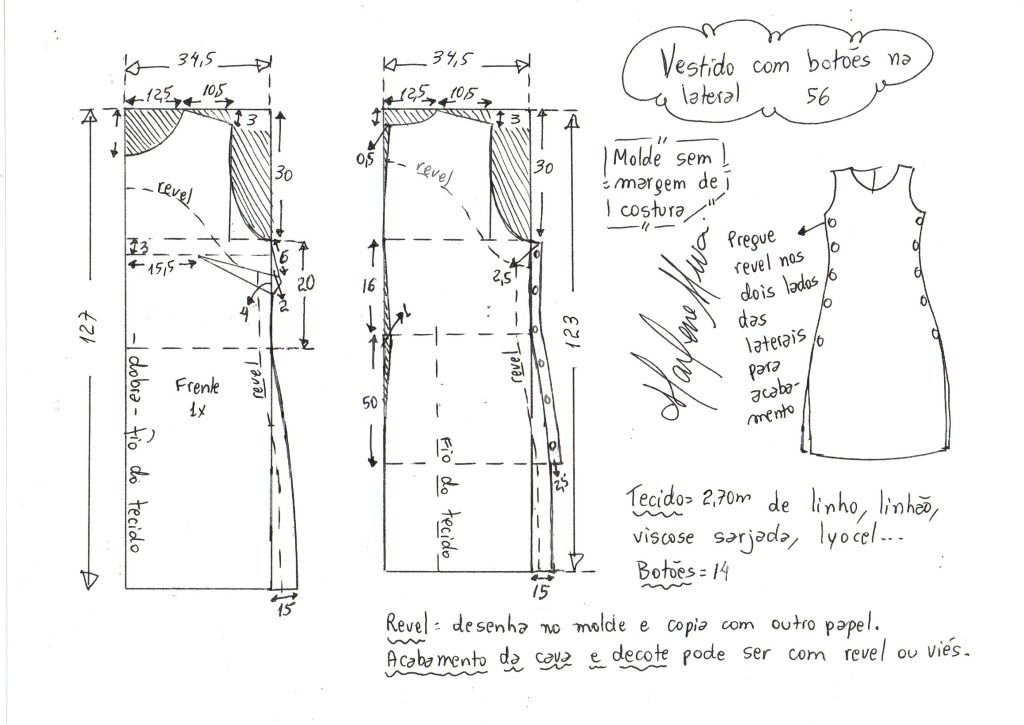 Vestido com botões na
lateral 56
34,5
12,5
10,5
3
30
revel
3
15,5
6
20
4
2
127
revel
Frente
1x
dobra - fio do tecido
15
34,5
12,5
10,5
3
0,5
revel
30
2,5
16
1
123
revel
50
Fio do tecido
2,5
15
Molde sem
margem de
costura
Marlene Mukai
Pregue
revel nos
dois lados
das
laterais
para
acaba-
mento
Tecido= 2,70m de linho, linhão,
viscose sarjada, lyocel...
Botões= 14
Revel= desenha no molde e copia com outro papel.
Acabamento da cava e decote pode ser com revel ou viés.